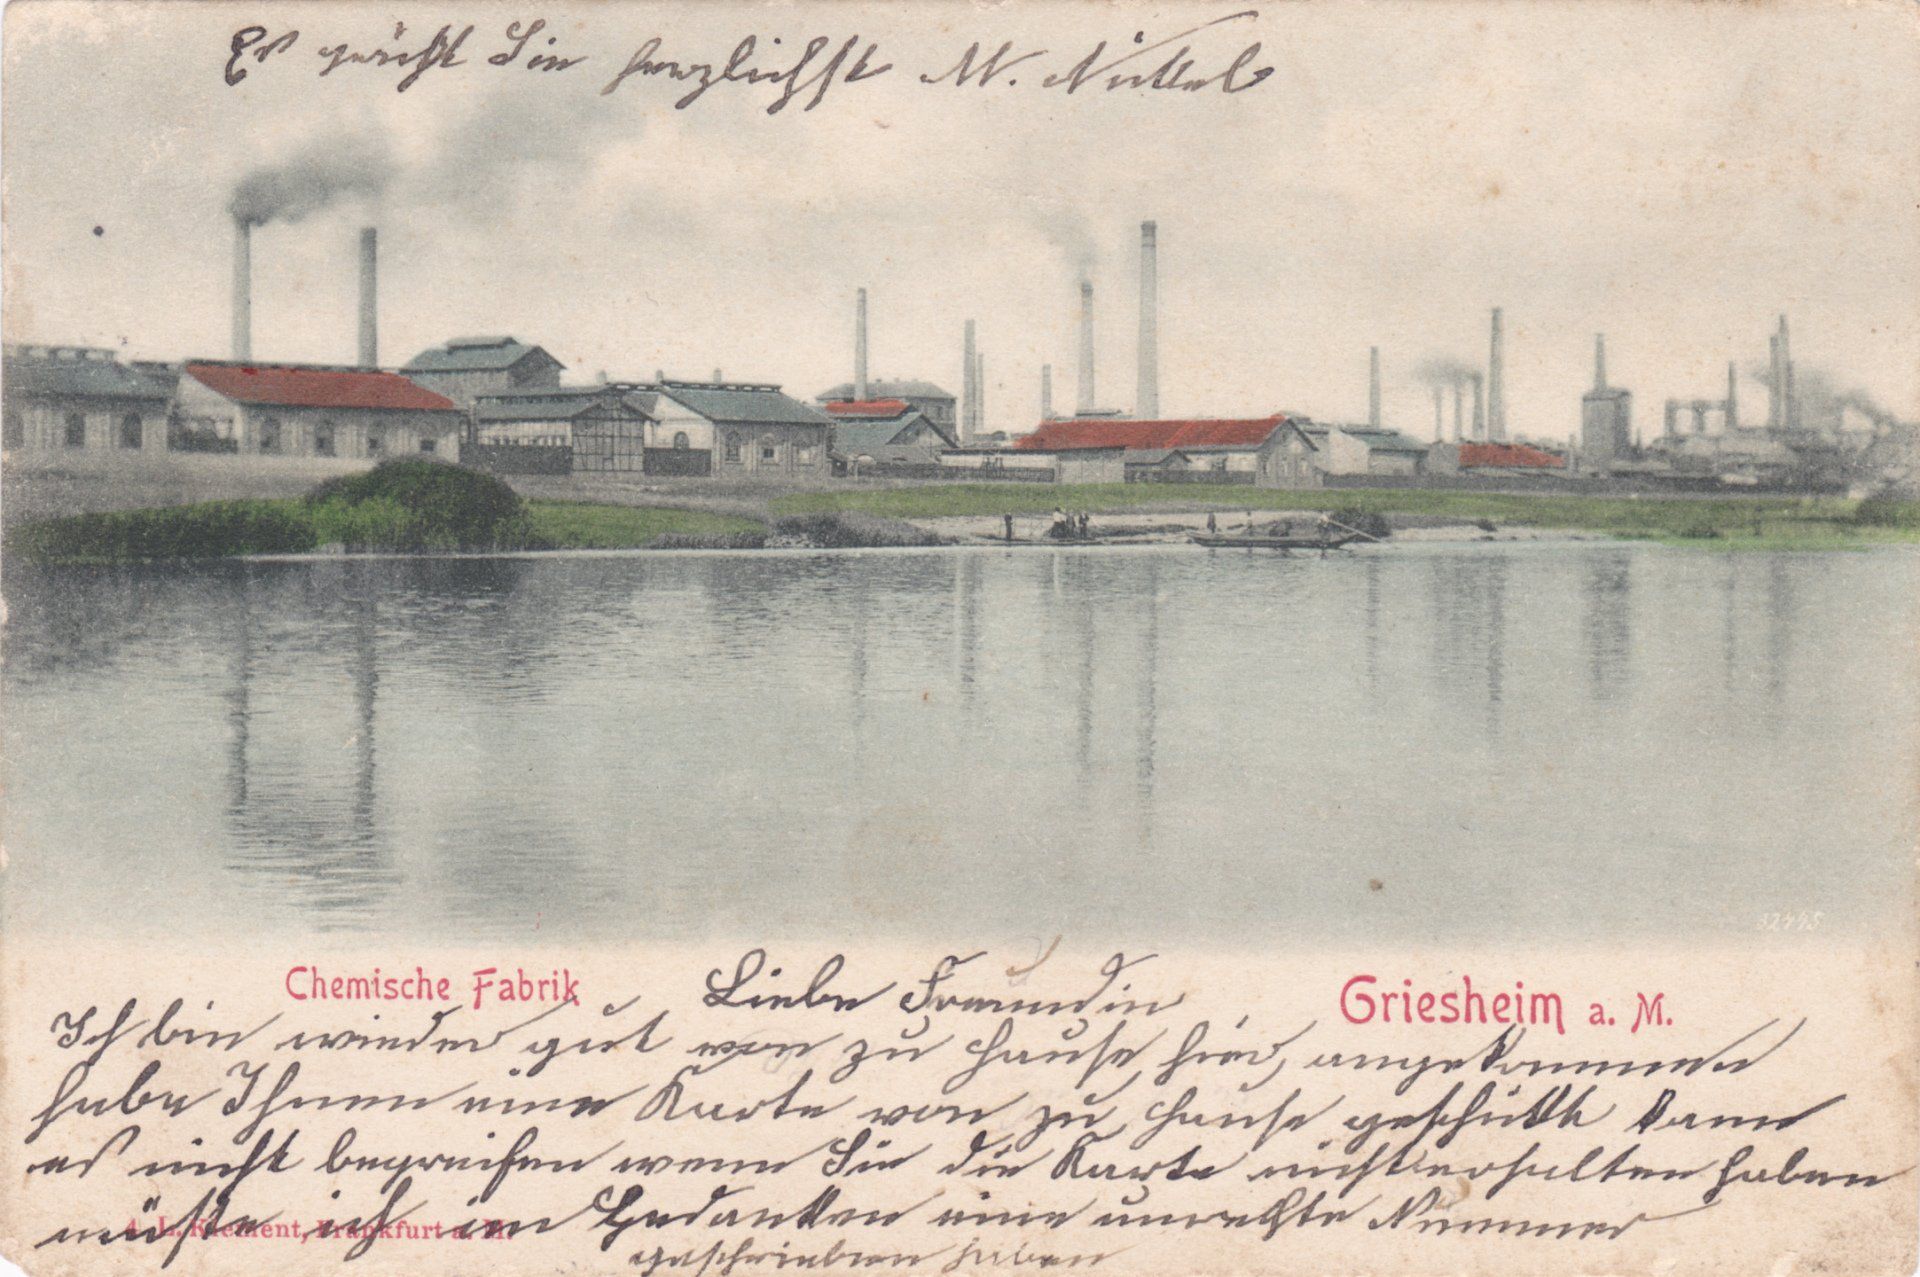 Es grüßt Sie herzlichst M. Nickel
32445
Chemische Fabrik
Liebe Freundin
Griesheim a. M.
Ich bin wieder gut von zu Hause hier, angekommen
habe Ihnen eine Karte von zu Hause geschickt kann
es nicht begreifen wenn Sie die Karte nicht erhalten haben
müßte ich im Gedanken eine unrechte Nummer
A. L. Klement, Frankfurt a. M.
geschrieben haben